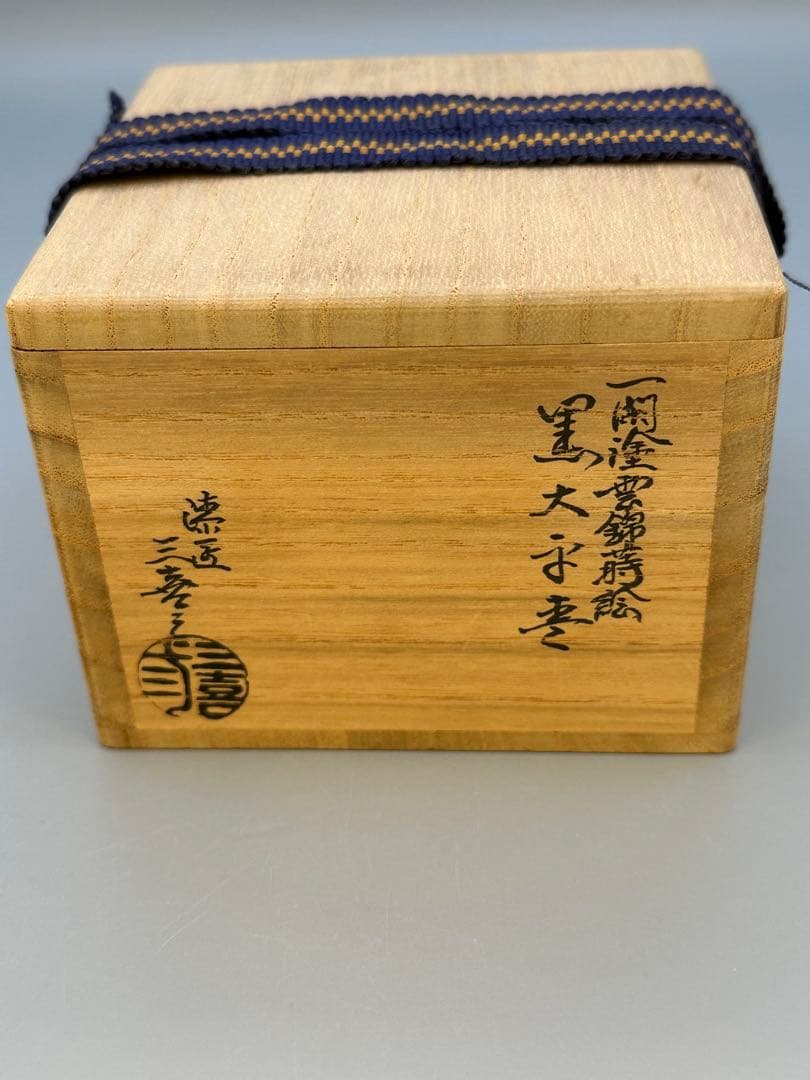 一閑塗雲錦蒔絵
黒大平棗
漆匠
三喜之
三喜之